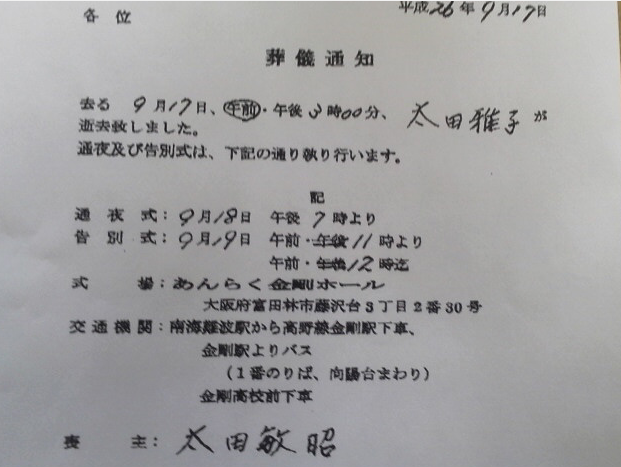 平成26年9月17日
各位
葬儀通知
去る 9月17日、午前・午後3時00分、 太田雅子が
逝去致しました。
通夜及び告別式は、下記の通り執り行います。
記
通夜式：9月18日 午後 7時より
告別式：9月19日 午前・午後11時より
午前・午後12時迄
式場：あんらく金剛ホール
大阪府富田林市藤沢台3丁目2番30号
交通機関：南海難波駅から高野線金剛駅下車、
金剛駅よりバス
（1番のりば、向陽台まわり）
金剛高校前下車
喪主：太田敏昭